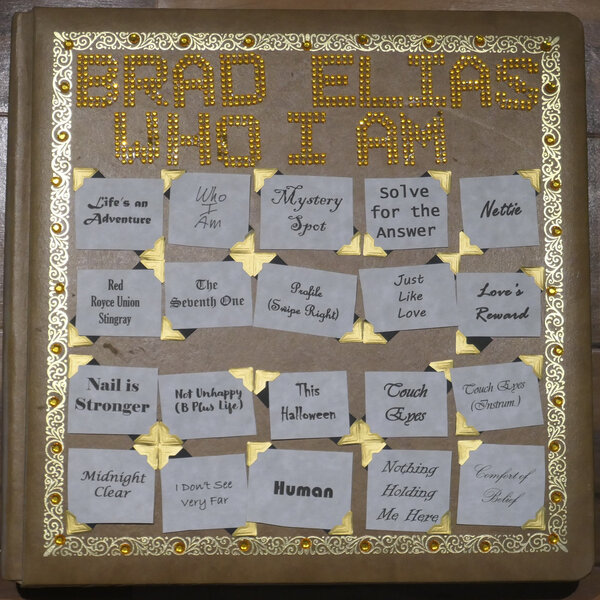 BRAD ELIAS
WHO I AM
Life's an
Adventure
Who
I
Am
Mystery
Spot
Solve
for the
Answer
Nettie
Red
Royce Union
Stingray
The
Seventh One
Profile
(Swipe Right)
Just
Like
Love
Love's
Reward
Nail is
Stronger
Not Unhappy
(B Plus Life)
This
Halloween
Touch
Eyes
Touch Eyes
(Instrum.)
Midnight
Clear
I Don't See
Very Far
Human
Nothing
Holding
Me Here
Comfort of
Belief